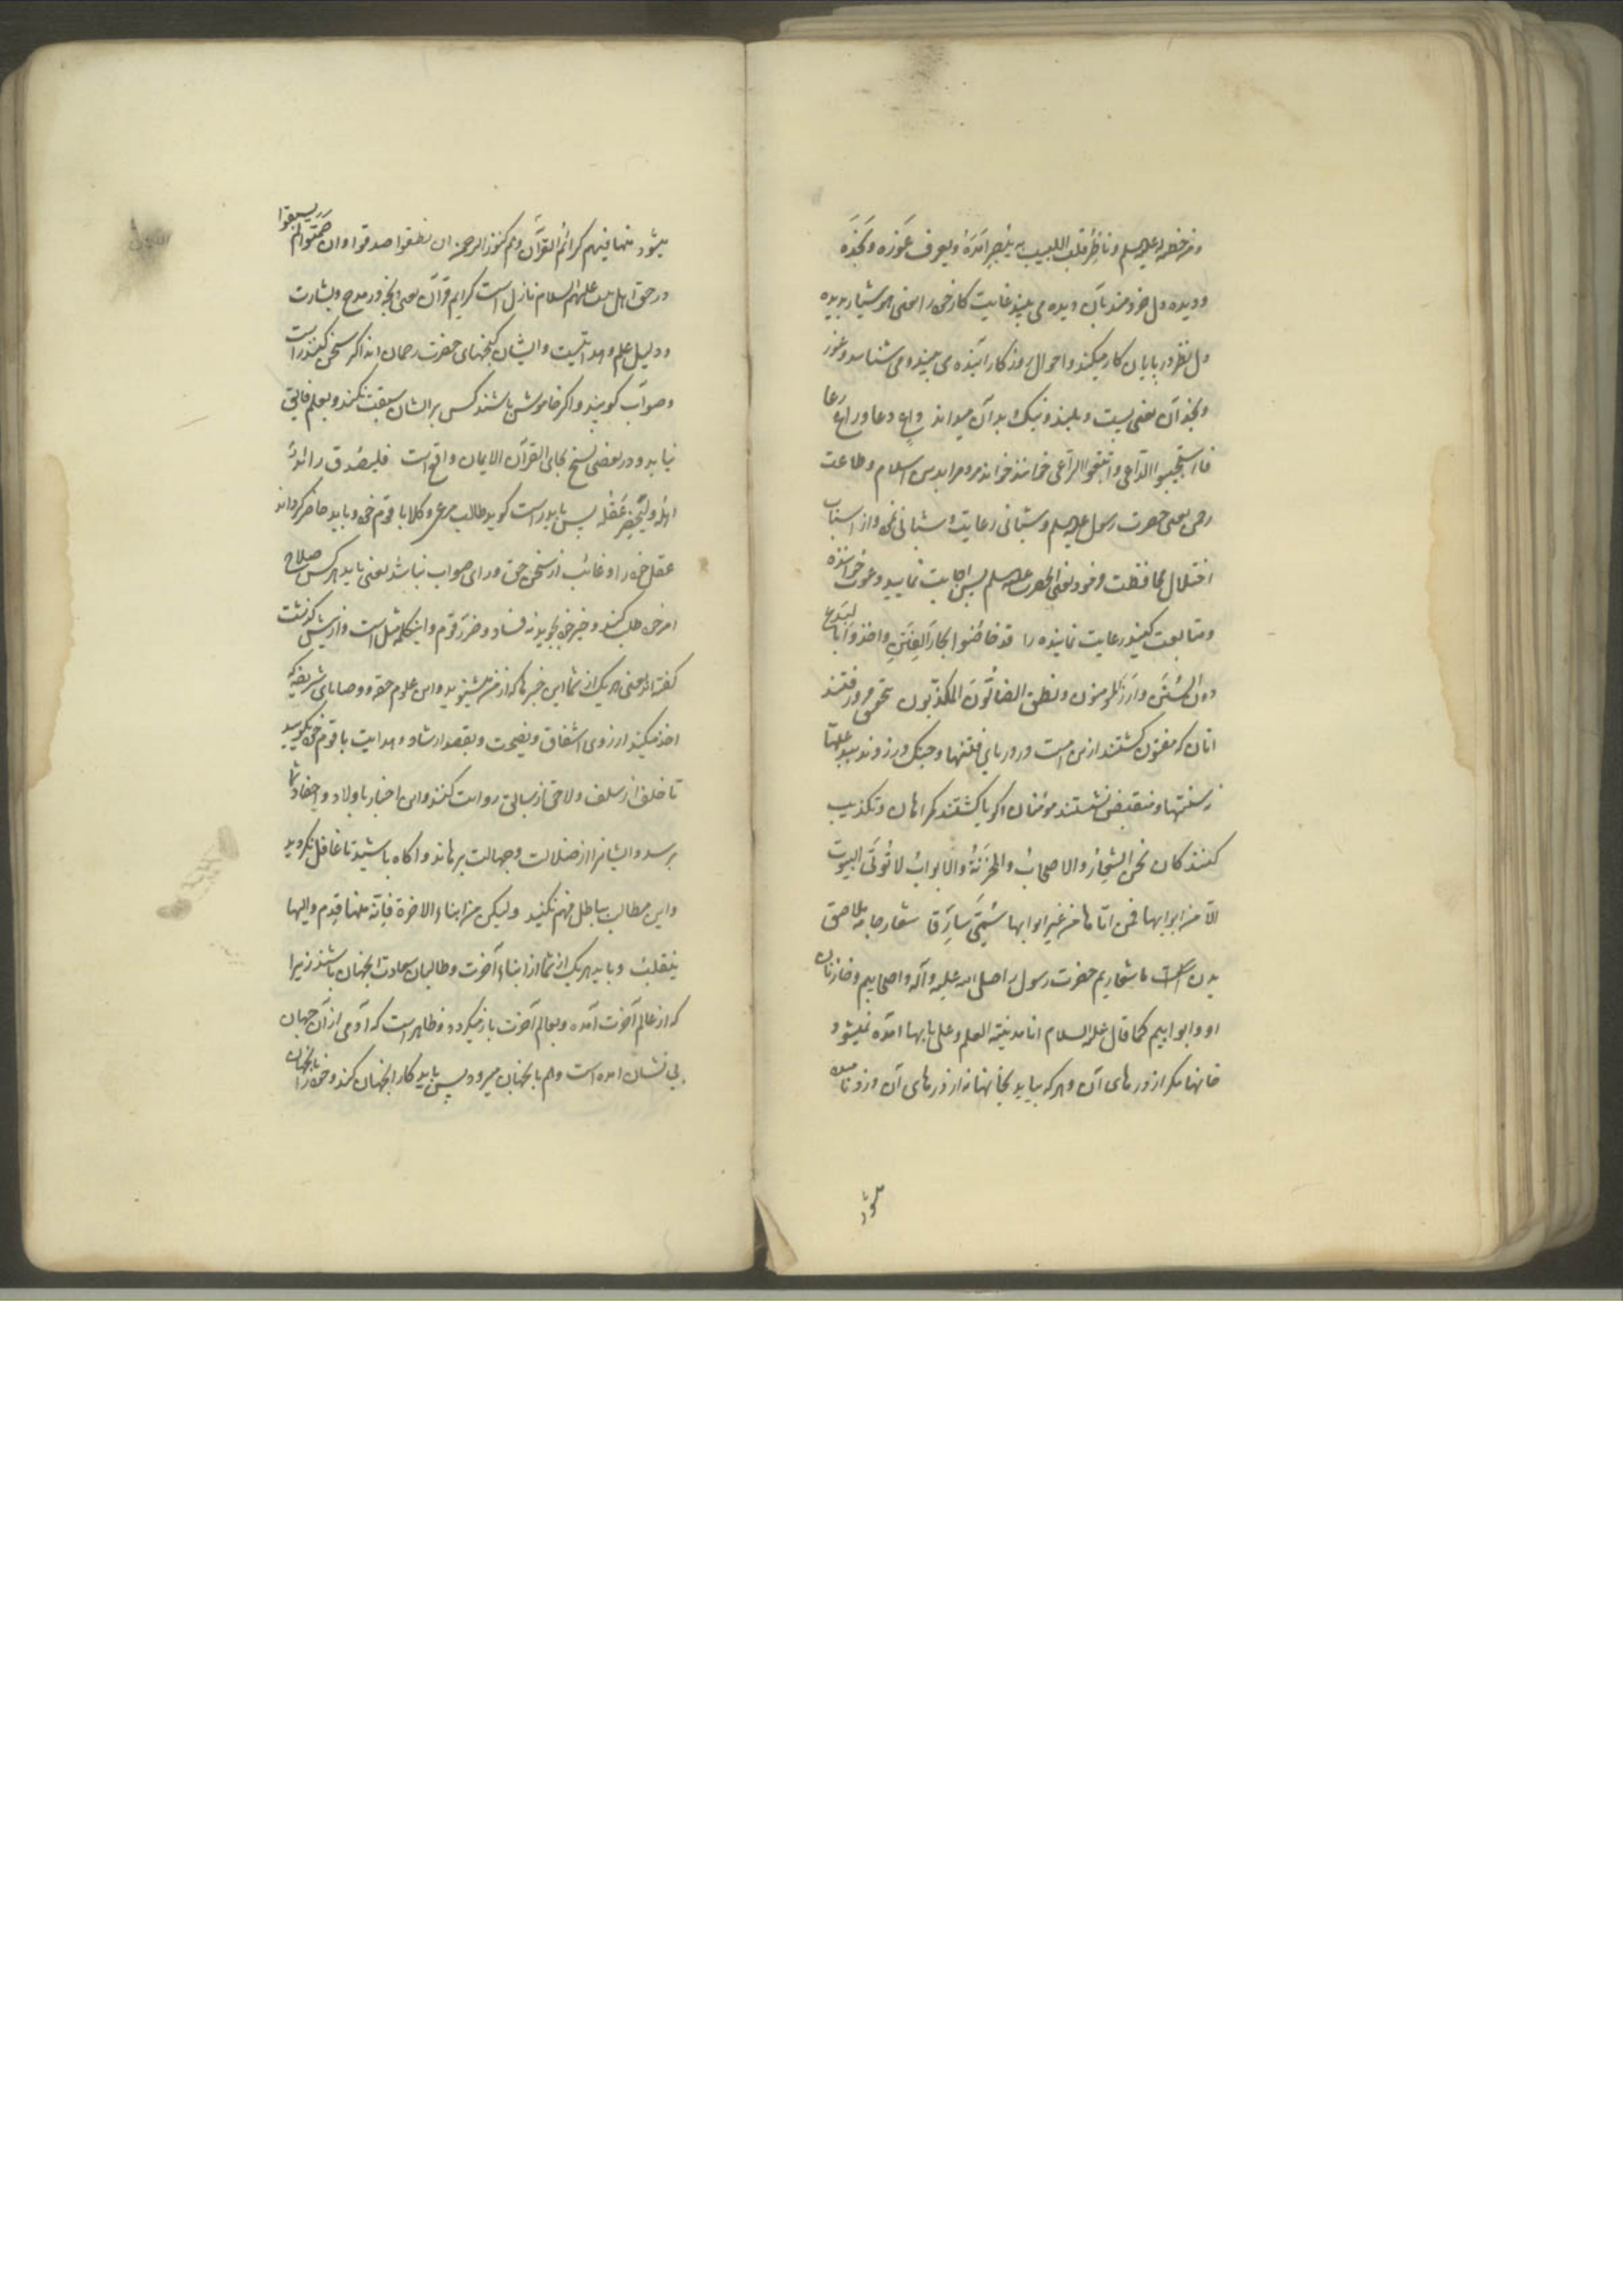 ومن خطبه له علیه السلم وناظر قلب اللبیب به یبصر امده ویعرف غوره ونجده
ودیده دل خردمند بآن دیده می بیند غایت کار خود را یعنی هوشیار بدیده
دل نظر در پایان کار میکند واحوال روزکار آینده می بیند ومی شناسد وغور
ونجد آن یعنی پست وبلند ونیک وبد آن میداند داع دعا وراع رعا
فاستجیبوا الداعی واتبعوا الراعی خواننده خواند مردم را بدین اسلام وطاعت
رحمن یعنی حضرت رسول علیه السلم وشبانی رعایت وشبانی نمود از اسباب
اختلال محافظت فرمود یعنی انحضرت علیه السلم پس اجابت نمایید دعوت خواننده
ومتابعت کنید رعایت نماینده را قد خاضوا بحار الفتن واخذوا بالبدع
دون السنن وأرز المؤمنون ونطق الضالون المکذبون بتحقیق فرو رفتند
آنان که مفتون کشتند ازین امت در دریاهای فتنها وچنک در زدند ببدعتها
نه سنتها ومنقبض نشستند مؤمنان وکویا کشتند کمراهان وتکذیب
کنندکان نحن الشعار والاصحاب والخزنة والابواب لا تؤتی البیوت
الا من ابوابها فمن اتاها من غیر ابوابها سُمّی سارقا شعار جامه ملاصق
بدن است ما شعاریم حضرت رسول را صلی الله علیه وآله واصحابیم وخازنان
او وابوابیم کما قال علیه السلام انا مدینة العلم وعلی بابها آمده نمیشود
خانها مکر از درهای آن وهر که بیاید بخانها نه از درهای آن دزد نامیده
میشود
میشود منها فیهم کرائم القرآن وهم کنوز الرحمن ان نطقوا صدقوا وان صمتوا لم یسبقوا
در حق اهل بیت علیهم السلام نازل است کرایم قرآن یعنی آنچه در مدح وبشارت
ودلیل علم وهدایتست وایشان کنجهای حضرت رحمان اند اکر سخن کنند راست
وصواب کویند واکر خاموش باشند کس بر ایشان سبقت نکند وبعلم فایق
نیاید ودر بعضی نسخ بجای القرآن الایمان واقع است فلیصدق رائد
اهله ولیحضر عقله پس باید راست کوید طالب مرعی وکلا با قوم خود وباید حاضر کرداند
عقل خود را وغائب از سخن حق ورای صواب نباشد یعنی باید هر کس صلاح
امر خود طلب کند وخیر خود بجوید نه فساد وضرر قوم واینکلمه مثل است وازین پیش کذشت
کفته اند یعنی هر یک از شما این خبرها که از من میشنوید واین علوم حقه ووصایای شریفه که
اخذ میکنید از روی اشفاق ونصیحت وبقصد ارشاد وهدایت با قوم خود بکویید
تا خلف از سلف ولاحق از سابق روایت کنند واین اخبار باولاد واحفاد شما
برسد وایشانرا از ضلالت وجهالت برهاند واکاه باشید تا غافل نکردید
واین مطالب بباطل فهم نکنید ولیکن من ابناء الاخرة فانه منها قدم والیها
ینقلب وباید هر یک از شما از ابناء آخرت وطالبان سعادت آنجهان باشند زیرا
که از عالم آخرت آمده وبعالم آخرت باز میکردد وظاهر است که آدمی از آن جهان
بی نشان آمده است وهم بآنجهان میرود پس باید کار آنجهان کند وخود را بآنجهان